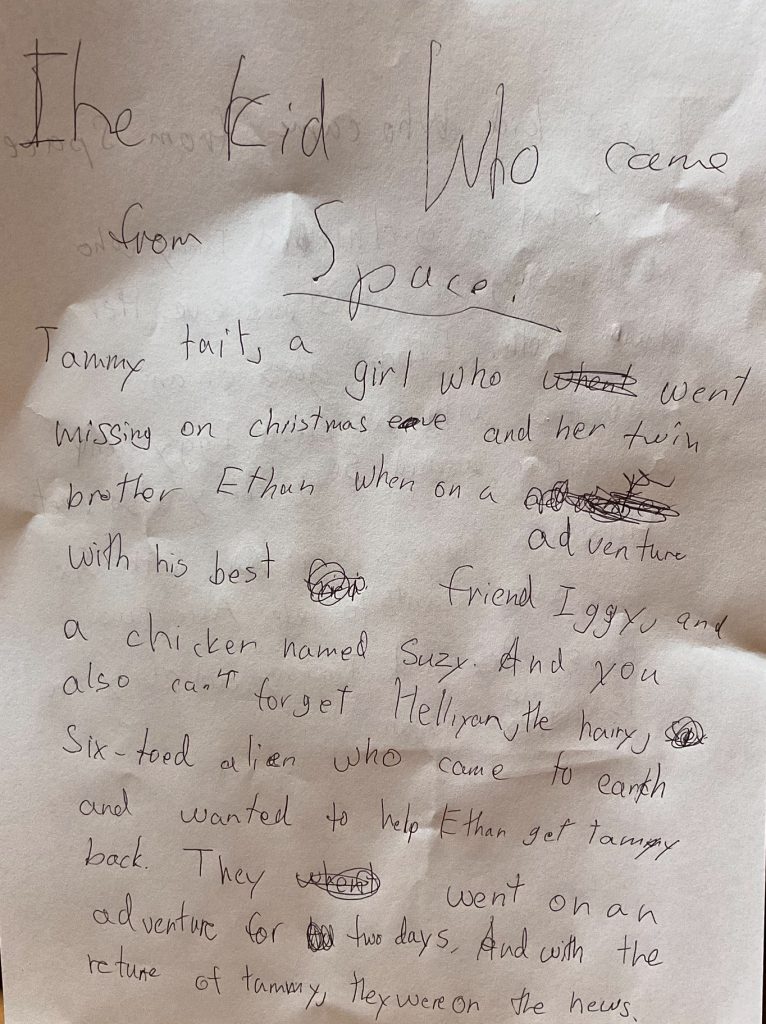 The Kid Who came
from Space.
Tammy tait, a girl who went
missing on christmas eve and her twin
brother Ethan when on a
adventure
with his best friend Iggy, and
a chicken named Suzy. And you
also can't forget Helliyan, the hairy,
Six-toed alien who came to earth
and wanted to help Ethan get tammy
back. They went on an
adventure for two days. And with the
returne of tammy, they were on the news.